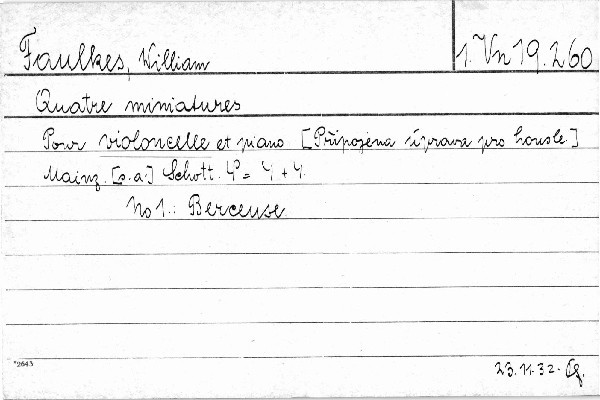 Faulkes, William
1. Vn 19.260
Quatre miniatures
Pour violoncelle et piano [Připojena úprava pro housle.]
Mainz. [s.a.] Schott. 4° = 4 + 4.
No 1.: Berceuse.
*2643
23.11.32.